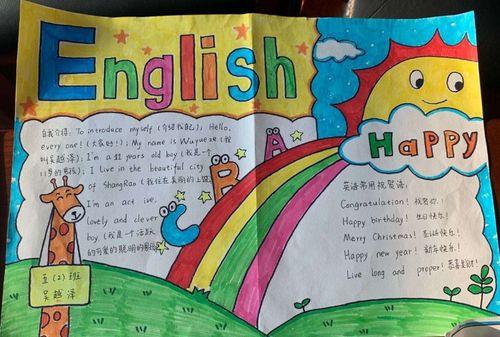 English
自我介绍: To introduce myself (介绍我自己), Hello,
every one! (大家好!); My name is Wuyueze (我
叫吴越泽); I'm a 11 years old boy (我是一个
11岁的男孩); I live in the beautiful city
of ShangRao (我住在美丽的上饶
I'm an act ive,
lovely and clever
boy (我是个活跃
的可爱的聪明的男孩
A
B
C
五(2)班
吴越泽
Happy
英语常用祝贺语:
Congratulation! 祝贺你!
Happy birthday! 生日快乐!
Merry Christmas! 圣诞快乐!
Happy new year! 新年快乐!
Live long and proper! 恭喜发财!